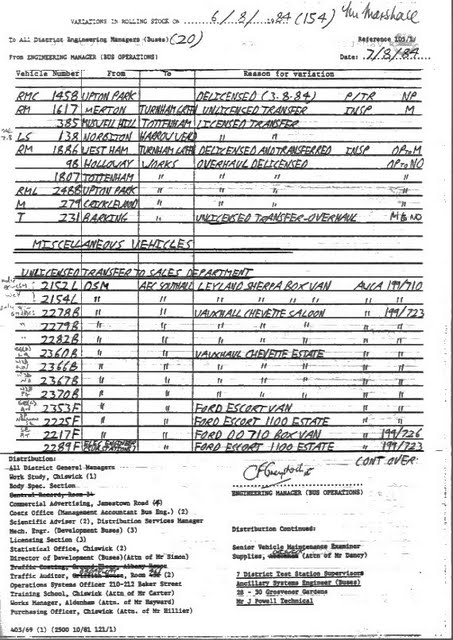 VARIATIONS IN ROLLING STOCK ON 6/8/1984 (154) Mr Marshall
To All District Engineering Managers (Buses) (20) Reference
From ENGINEERING MANAGER (BUS OPERATIONS) Date: 7/8/84
Vehicle Number From To Reason for variation
RMC 1458 UPTON PARK DELICENSED (3.8.84) P/TR NP
RM 1617 MERTON TURNHAM GREEN UNLICENSED TRANSFER INSP M
385 MUSWELL HILL TOTTENHAM LICENSED TRANSFER
LS 138 NORBITON HARROW WEALD " "
RM 1886 WEST HAM TURNHAM GREEN DELICENSED AND TRANSFERRED INSP OP to M
98 HOLLOWAY WORKS OVERHAUL DELICENSED OP to NO
1807 TOTTENHAM " " " "
RML 2488 UPTON PARK " " " "
M 279 CRICKLEWOOD " " " "
T 231 BARKING " UNLICENSED TRANSFER-OVERHAUL M to NO
MISCELLANEOUS VEHICLES
UNLICENSED TRANSFER TO SALES DEPARTMENT
2152L OSM AEC SOUTHALL LEYLAND SHERPA BOX VAN AUCA 199/710
2154L " " " " " " "
2278B " " VAUXHALL CHEVETTE SALOON " 199/723
2279B " " " " " " "
2282B " " " " " " "
2360B " " VAUXHALL CHEVETTE ESTATE " "
2366B " " " " " " "
2367B " " " " " " "
2370B " " " " " " "
2353F " " FORD ESCORT VAN " "
2225F " " FORD ESCORT 1100 ESTATE " "
2217F " " FORD DO 710 BOX VAN " 199/726
2289F " FORD ESCORT 1100 ESTATE " 199/723
CONT OVER
Distribution:
All District General Managers
Work Study, Chiswick (1)
Body Spec. Section
General Record, Room 34
Commercial Advertising, Jamestown Road (4)
Costs Office (Management Accountant Bus Eng.) (2)
Scientific Adviser (2), Distribution Services Manager
Mech. Engr. (Development Buses) (3)
Licensing Section (3)
Statistical Office, Chiswick (2)
Director of Development (Buses)(Attn of Mr Simon)
Traffic Costing, Ground Floor, Albany House
Traffic Auditor, Griffith House, Room
Operations Systems Officer 210-212 Baker Street
Training School, Chiswick (Attn of Mr Carter)
Works Manager, Aldenham (Attn of Mr Hayward)
Purchasing Officer, Chiswick (Attn of Mr Hillier)
ENGINEERING MANAGER (BUS OPERATIONS)
Distribution Continued:
Senior Vehicle Maintenance Examiner
Supplies, (Attn of Mr Dancy)
7 District Test Station Supervisors
Ancillary Systems Engineer (Buses)
28 - 30 Grosvenor Gardens
Mr J Powell Technical
403/69 (1) (2500 10/81 121/1)